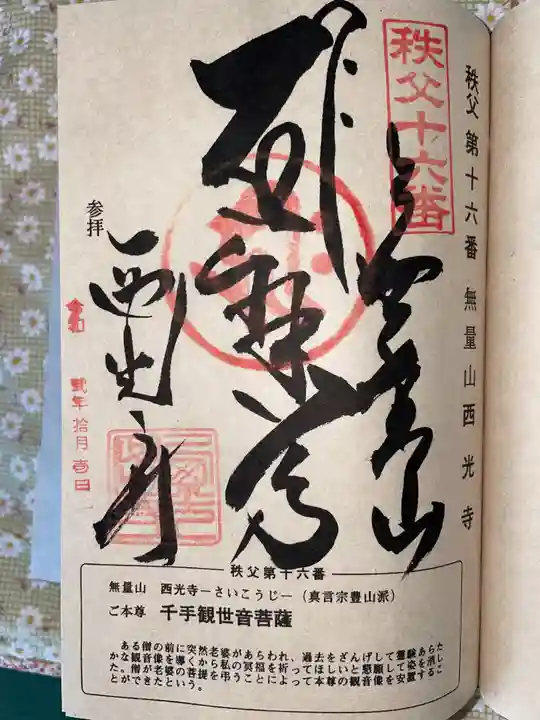 秩父第十六番 無量山西光寺
秩父十六番
無量山
参拝
西光寺
令和 弐年拾月壱日
秩父第十六番
無量山 西光寺－さいこうじ－（真言宗豊山派）
ご本尊 千手観世音菩薩
ある僧の前に突然老婆があらわれ、過去をざんげして霊験あらた
かな観音像を導くから私の冥福を祈ってほしいと懇願し姿を消し
た。僧が老婆の菩提を弔うことによって本尊の観音像を安置するこ
とができたという。